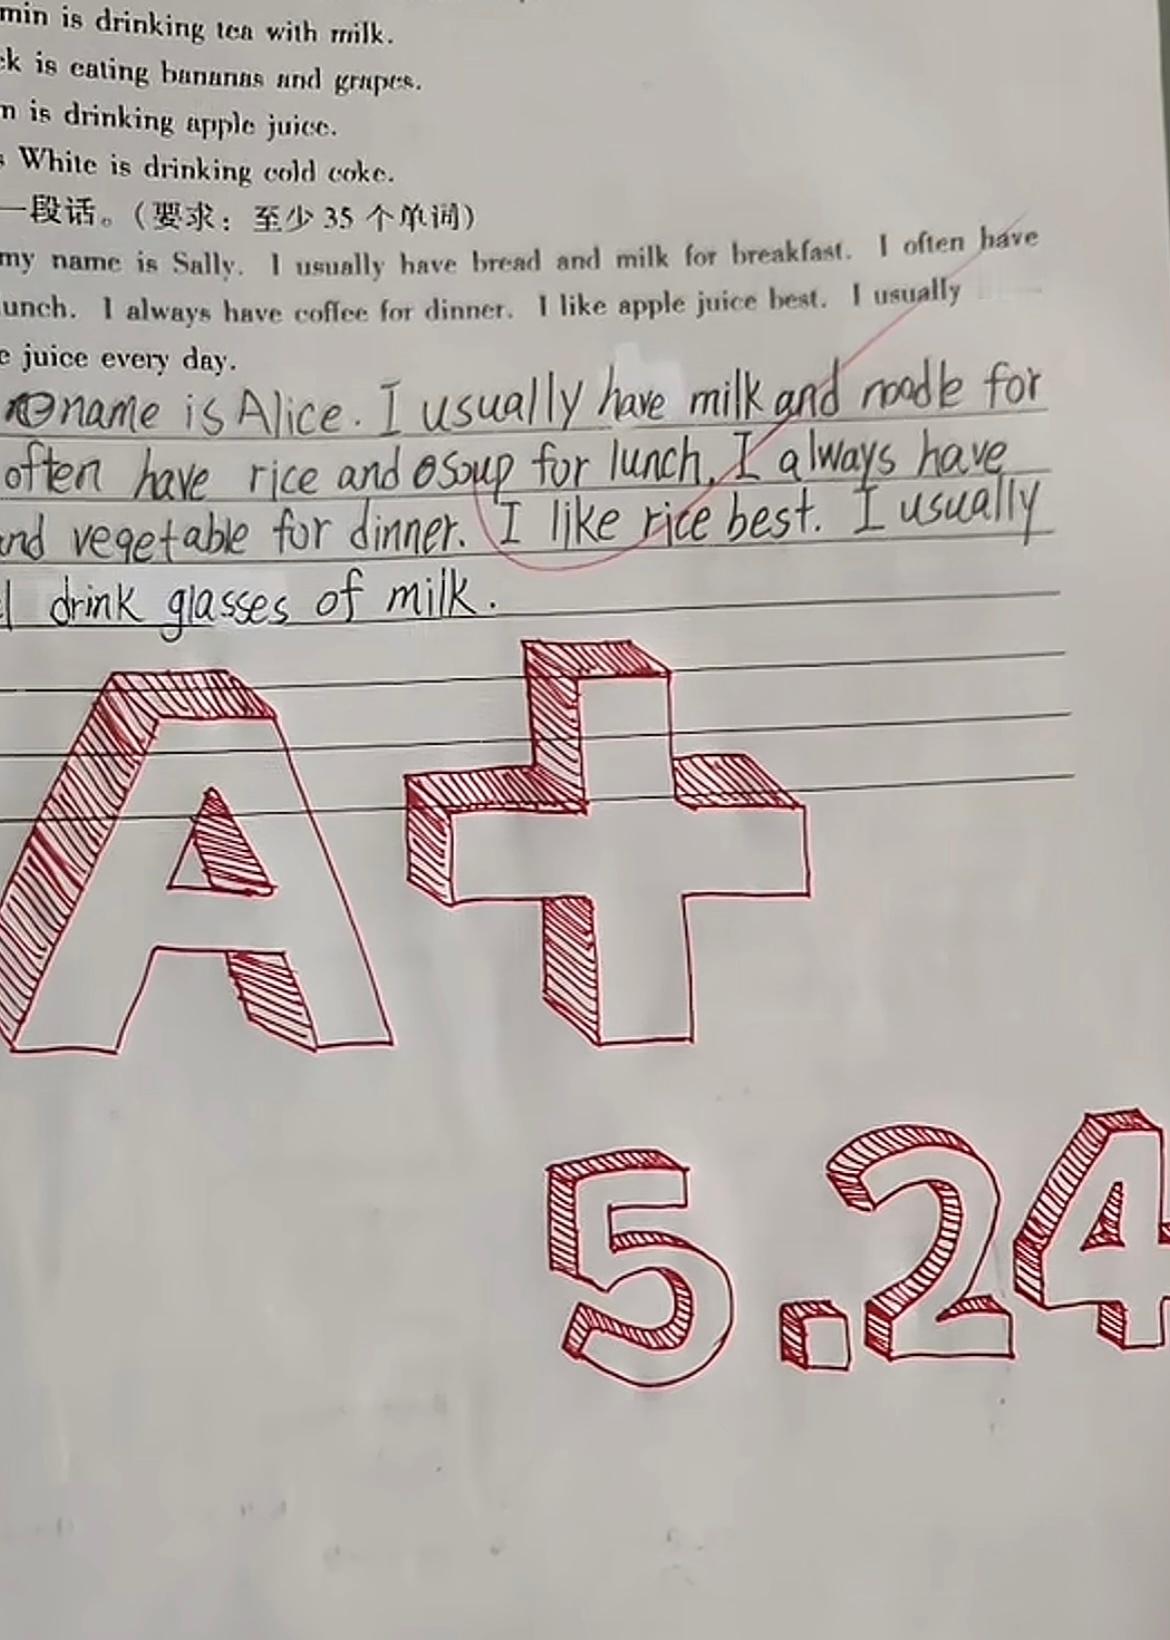 min is drinking tea with milk.
ck is eating bananas and grapes.
n is drinking apple juice.
s White is drinking cold coke.
一段话。（要求：至少 35 个单词）
my name is Sally. I usually have bread and milk for breakfast. I often have
unch. I always have coffee for dinner. I like apple juice best. I usually
e juice every day.
name is Alice. I usually have milk and noodle for
often have rice and soup for lunch. I always have
and vegetable for dinner. I like rice best. I usually
drink glasses of milk.
A+
5.24